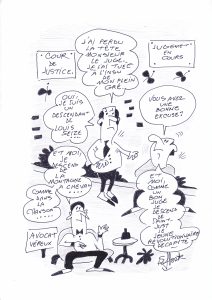 COUR
DE
JUSTICE.
J'AI PERDU
LA TÊTE
MONSIEUR
LE JUGE.
JE L'AI TUÉE
À L'INSU
DE
MON PLEIN
GRÉ.
JUGEMENT
EN
COURS
OUI,
JE SUIS
UN
DESCENDANT
DE
LOUIS
SEIZE
VOUS AVEZ
UNE
BONNE
EXCUSE?
ET MOI,
JE
DESCENDS
DE LA
MONTAGNE
À CHEVAL
COMME
DANS
LA
CHANSON
ET
MOI,
COMME
UN BON
JUGE
JE
DESCENDS
DE
SAINT-
JUST
LE JEUNE
RÉVOLUTIONNAIRE
DÉCAPITÉ.
AVOCAT
VÉREUX